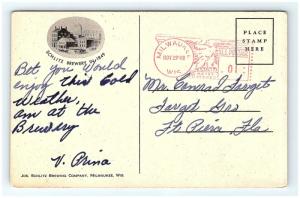 SCHLITZ BREWERY IN 1849
PLACE
STAMP
HERE
MILWAUKEE
WIS.
Bet you Would
enjoy this Cold
Weather,
am at the
Brewery
V. Prina
Mr. Conrad
Ft. Pierce, Fla
JOS. SCHLITZ BREWING COMPANY, MILWAUKEE, WIS.